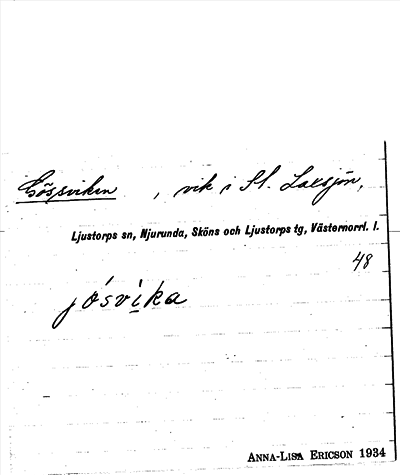 Gössviken, vik i St. Laxsjön,
Ljustorps sn, Njurunda, Sköns och Ljustorps tg, Västernorrl. l.
48
jósvika
ANNA-LISA ERICSON 1934